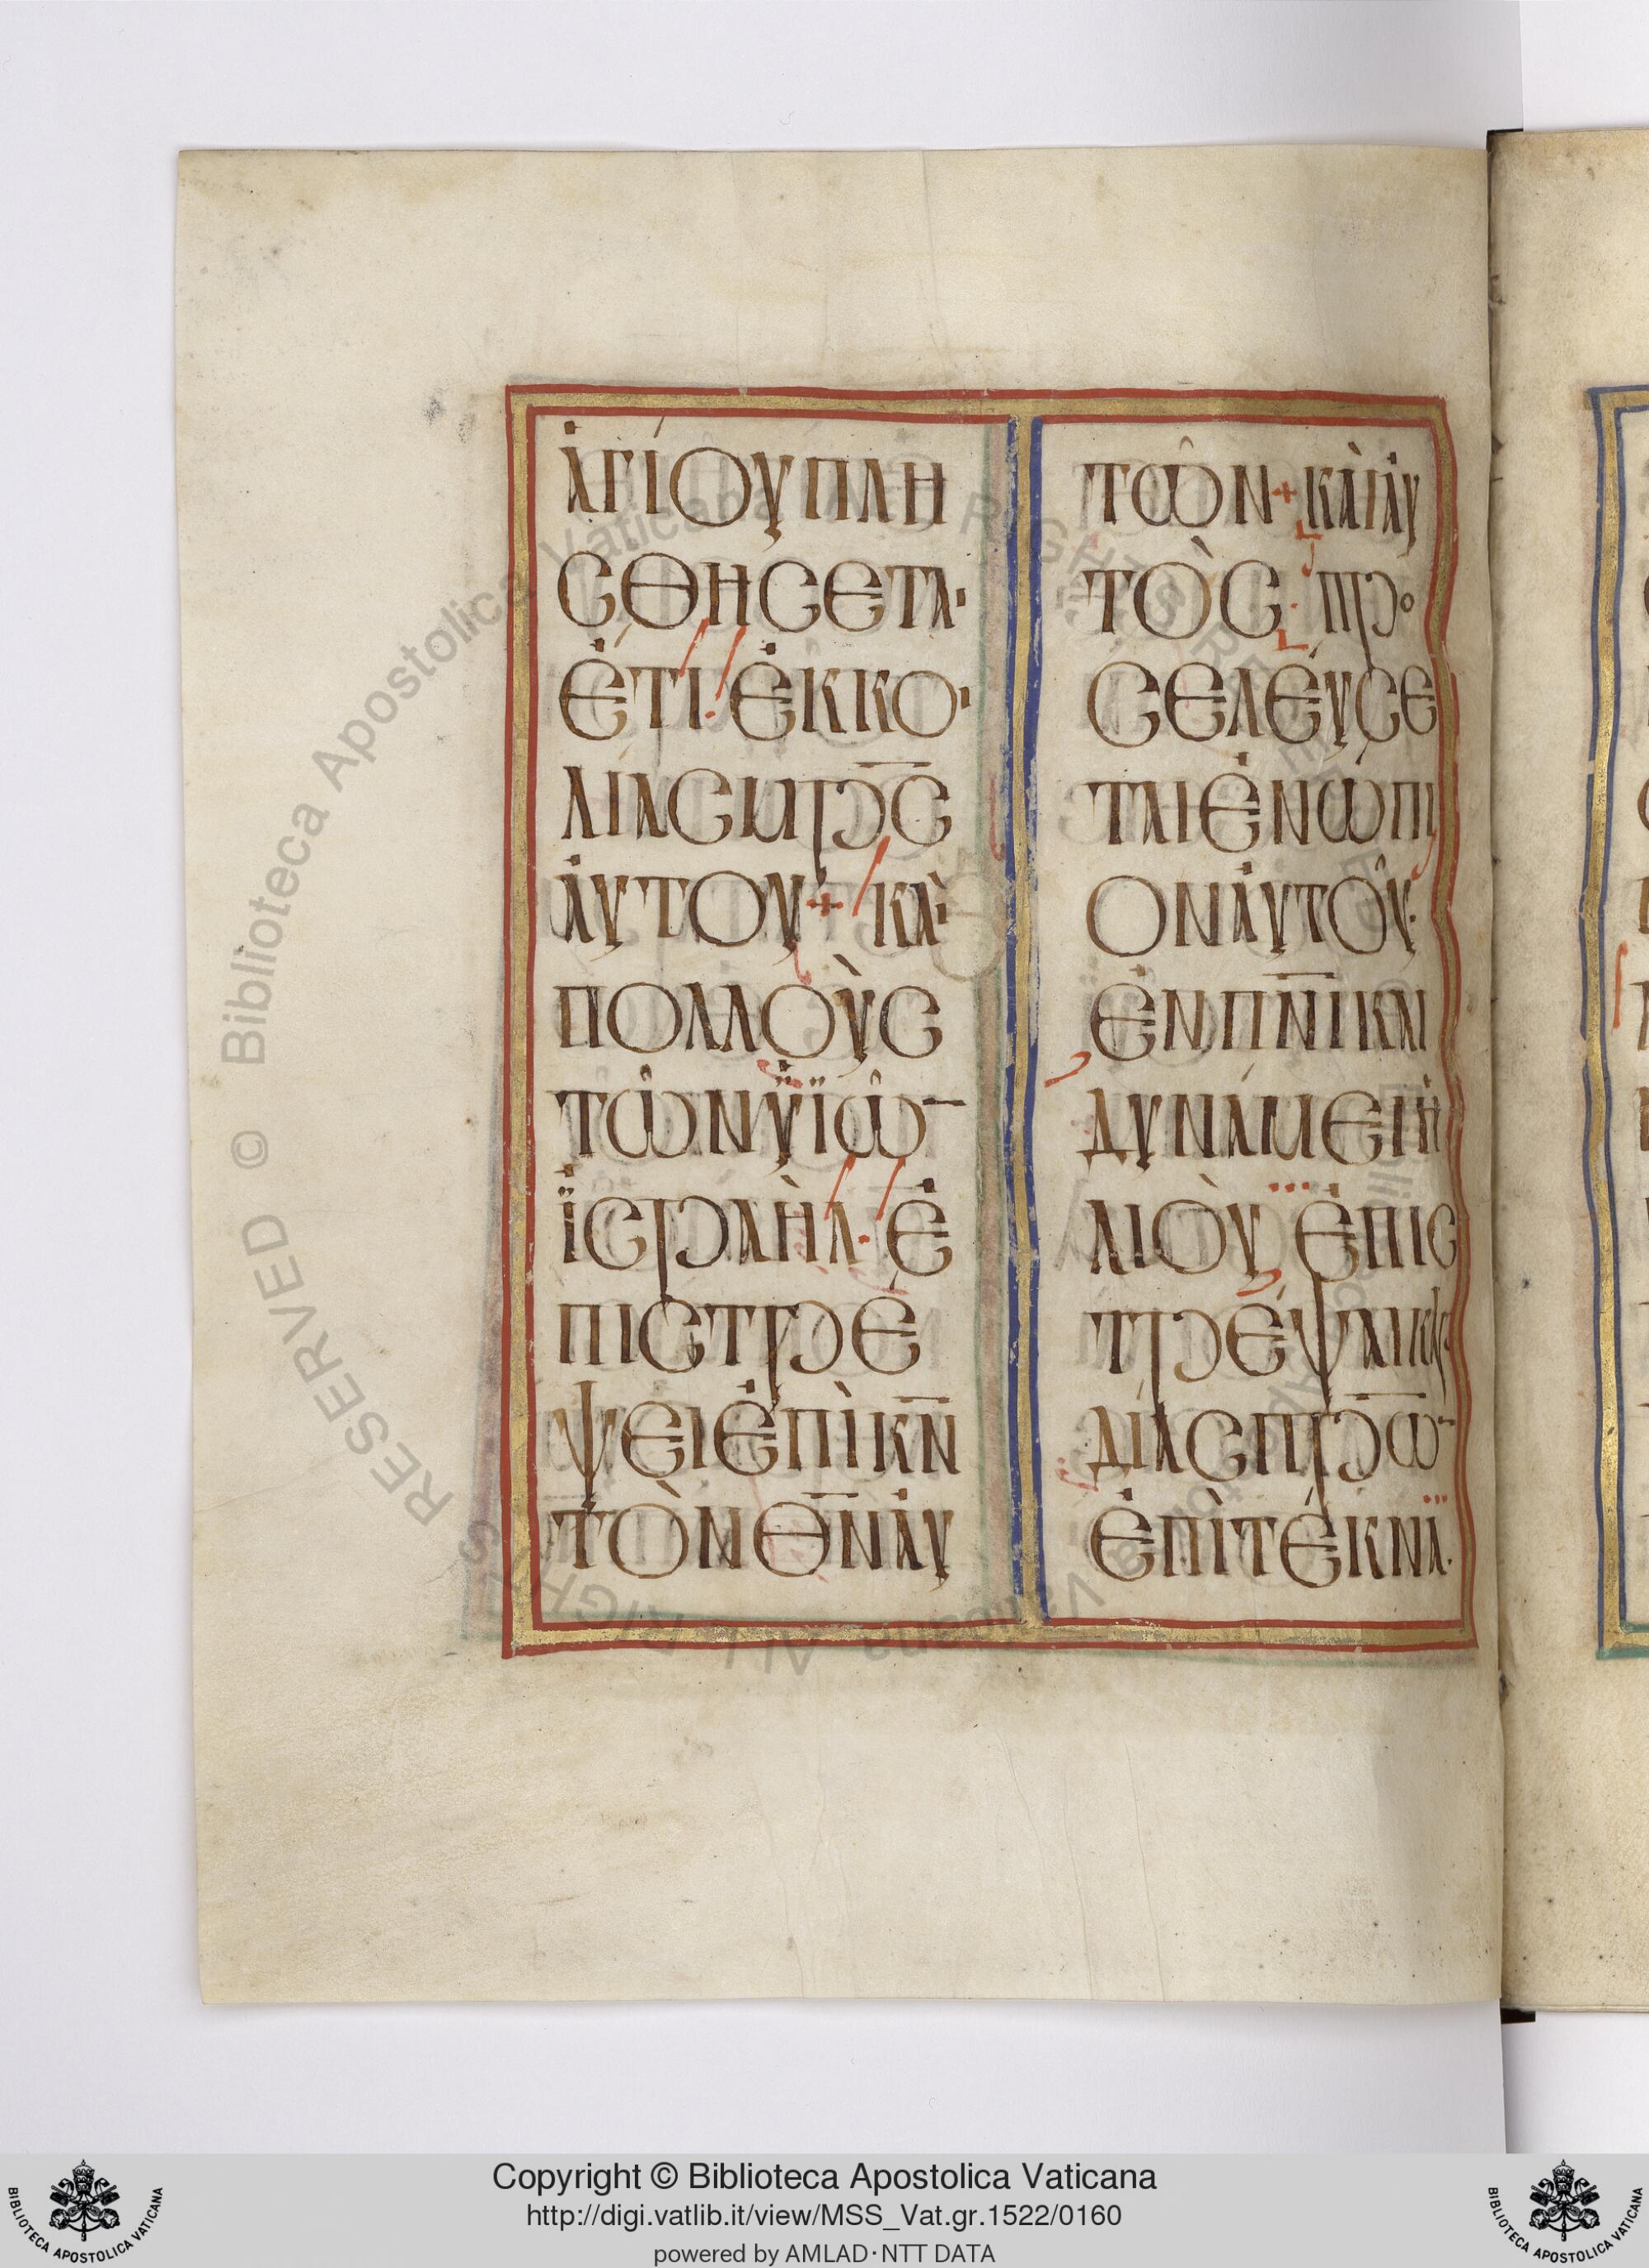 ἁγίουπλη
σθησετα·
ἔτι·ἐκκο·
λίασμρ̅σ̅
ἀυτου+καὶ
πολλοὺς
τῶνϋϊῶ–
ἰσραὴλ·ἐ
πιστρέ
ψειἐπὶκ̅ν̅
τὸνθ̅ν̅ἀυ
τῶν+καὶἀυ
τὸς·προ
σελέυσε
ταιἐνώπι
ονἀυτοῦ·
ἐνπ̅ν̅ι̅και
δυνάμειἡ
λιοὺ ἐπισ
τρέψαικαρ
δίασπρ̅ω̅–
ἐπὶτέκνα·
Biblioteca Apostolica Vaticana ALL RIGHTS RESERVED ©
BIBLIOTECA APOSTOLICA VATICANA
Copyright © Biblioteca Apostolica Vaticana
http://digi.vatlib.it/view/MSS_Vat.gr.1522/0160
powered by AMLAD·NTT DATA
BIBLIOTECA APOSTOLICA VATICANA